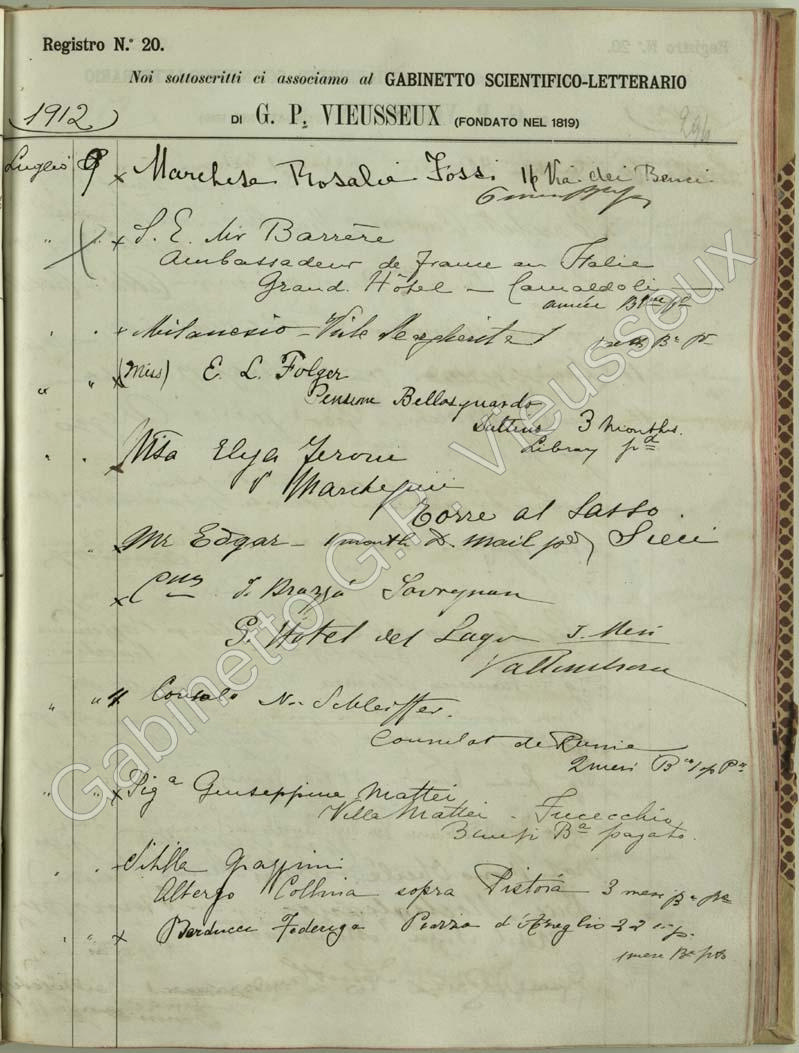 Registro N.° 20.
Noi sottoscritti ci associamo al GABINETTO SCIENTIFICO-LETTERARIO
1912
DI G. P. VIEUSSEUX (FONDATO NEL 1819)
296
Luglio 9 x Marchesa Rosalia Fossi 16 Via dei Benci
" " x S. E. Mr Barrère
Ambassadeur de France en Italie
Grand Hôtel - Camaldoli
année
" " x Milanesio - Viale Margherita
" " x (Miss) E. L. Folger
Pensione Bellosguardo
3 months.
Library pd
" "
Torre al Sasso.
" " x Mr Edgar - 1 month D. Mail pd Sieci
x J. Brazzà Savorgnan
G. Hotel del Lago 3. Mesi
Vallombrosa
" " Console N. Schleiffer.
Consulat de Russie
2 mesi
" " x Sig.a Giuseppina Mattei
Villa Mattei - Fucecchio
3 mesi Ba pagato.
" "
Albergo Collina sopra Pistoia 3 mesi
" " x Piazza d'Azeglio
1 mese
Gabinetto G.P. Vieusseux